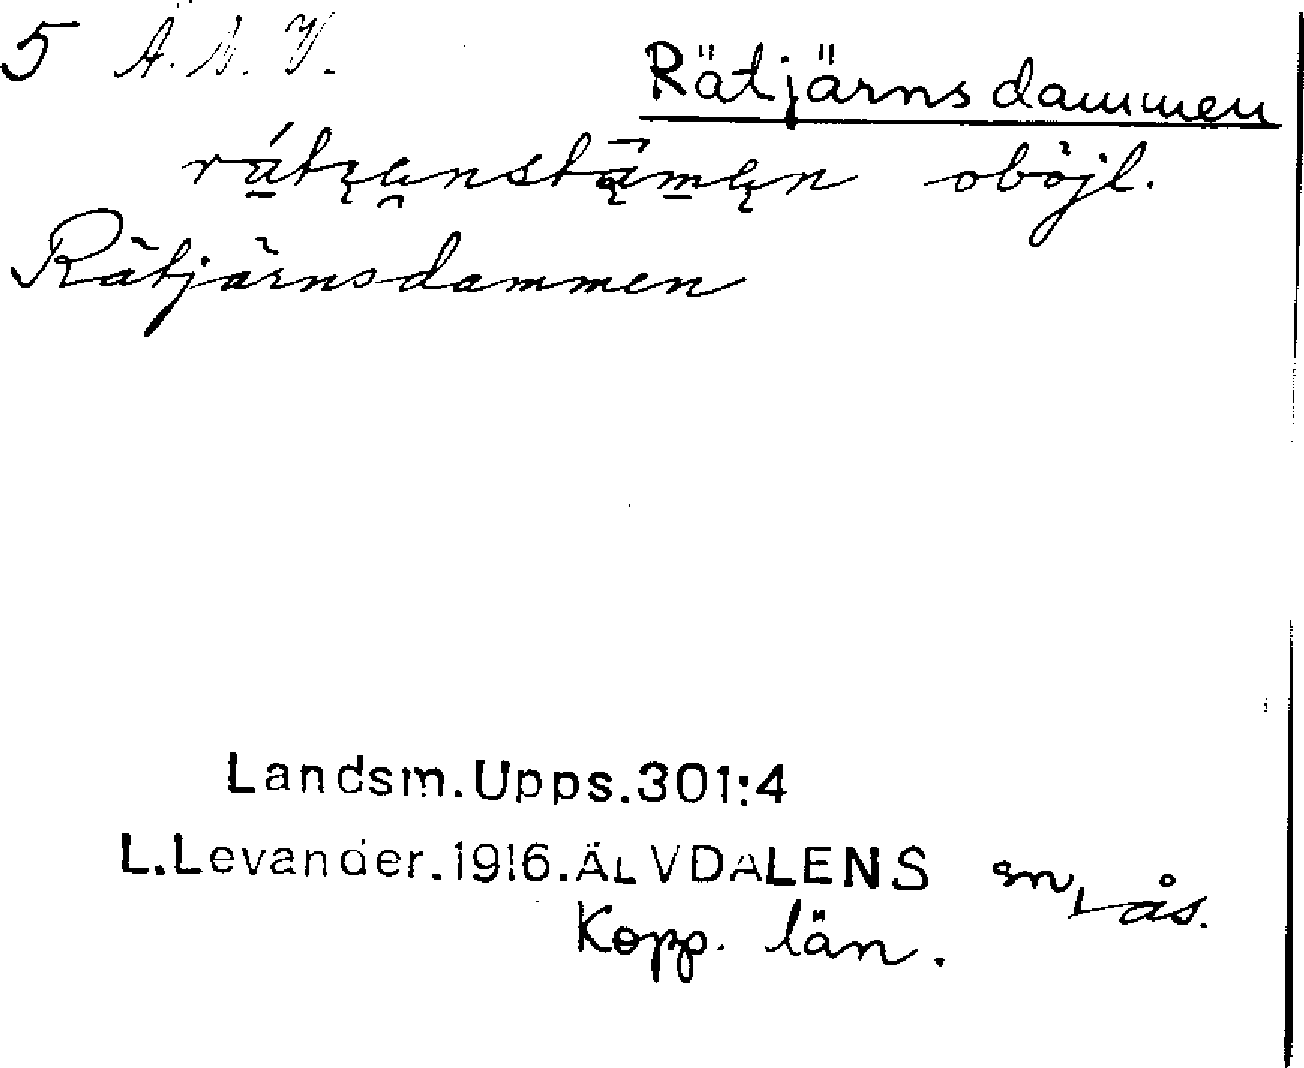 5 Ä. N. V.
Rätjärnsdammen
oböjl.
Rätjärnsdammen
Landsm.Upps.301:4
L.Levander.1916.ÄLVDALENS sn, Åsen
Kopp. län.